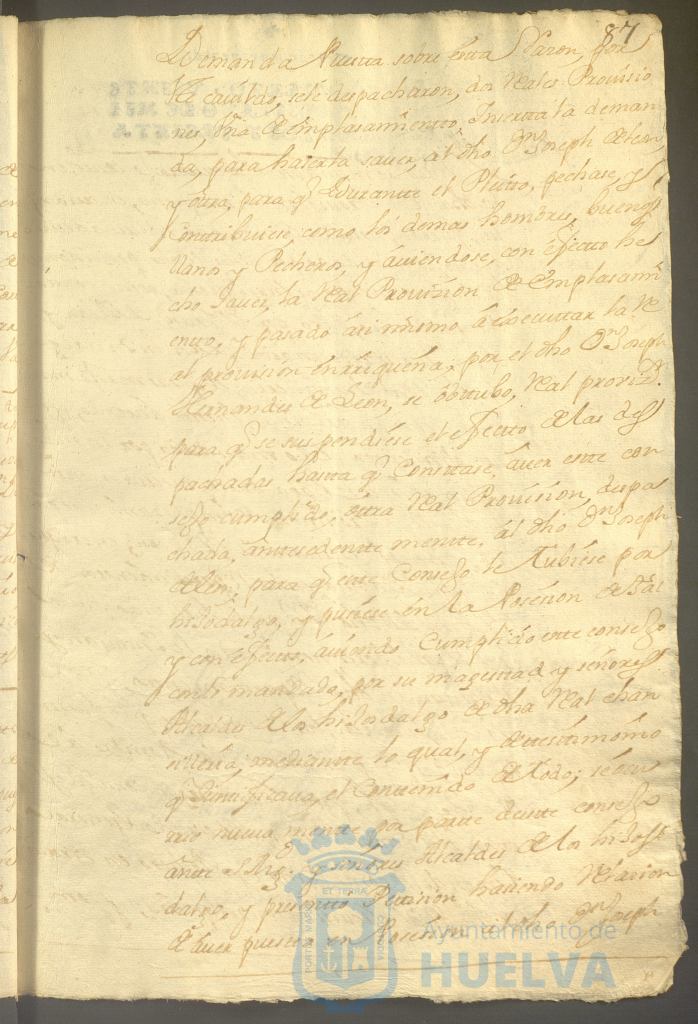 87
Demanda Puesta sobre esta Razon, por
el cavildo, se le despacharon, dos Reales Provisio
nes, Una de emplasamiento, Inserta la deman
da, para haserla saver, al dho Dn Joseph de leon
y otra, para q Durante el Pleito, pechase, y
Contribuiese, como los demas hombres, buenos
llanos y Pecheros, y aviendose, con efecto he
cho saver, la Real Provision de emplasami
ento, y pasado asi mismo, a executtar la Re
al provision enrriqueña, por el dho Dn Joseph
Hernandes de Leon, se obtubo, Real proviz.
para q se suspendiese el efecto de las des
pachadas hasta q Constase aver este con
sejo cumplido, otra Real Provision, despa
chada, antesedente mente, al dho Dn Joseph
de leon, para q este Consejo le tubiese por
hijodalgo, y pusiese en la Posesion de tal
y con efecto, aviendo Cumplido este consejo
con lo mandado, por su magestad y señores
Alcaldes de los hijosdalgo de dha Real chan
silleria, mediante lo qual, y de testimonio
q Justificava, el Contenido de todo; se ocu
rrio nueva mente por parte deste consejo
ante y señores Alcaldes de los hijos
dalgo, y presento Peticion hasiendo Relacion
de aver puesto en Posesion al dho Dn Joseph
ET TERRÆ
PORTUS MARIS
CUSTODIA
Ayuntamiento de
HUELVA